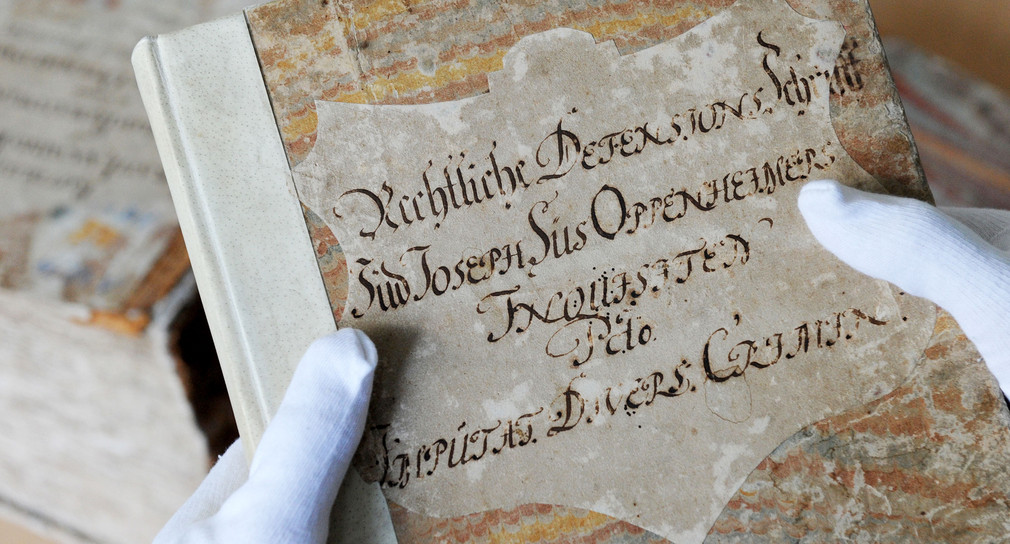 Rechtliche DEFENSIONS Schrifft
Jüd JOSEPH Süs OPPENHEIMERS
INQUISITEN
Pcto.
IMPÚTAT. DIVERS. CRIMIN.